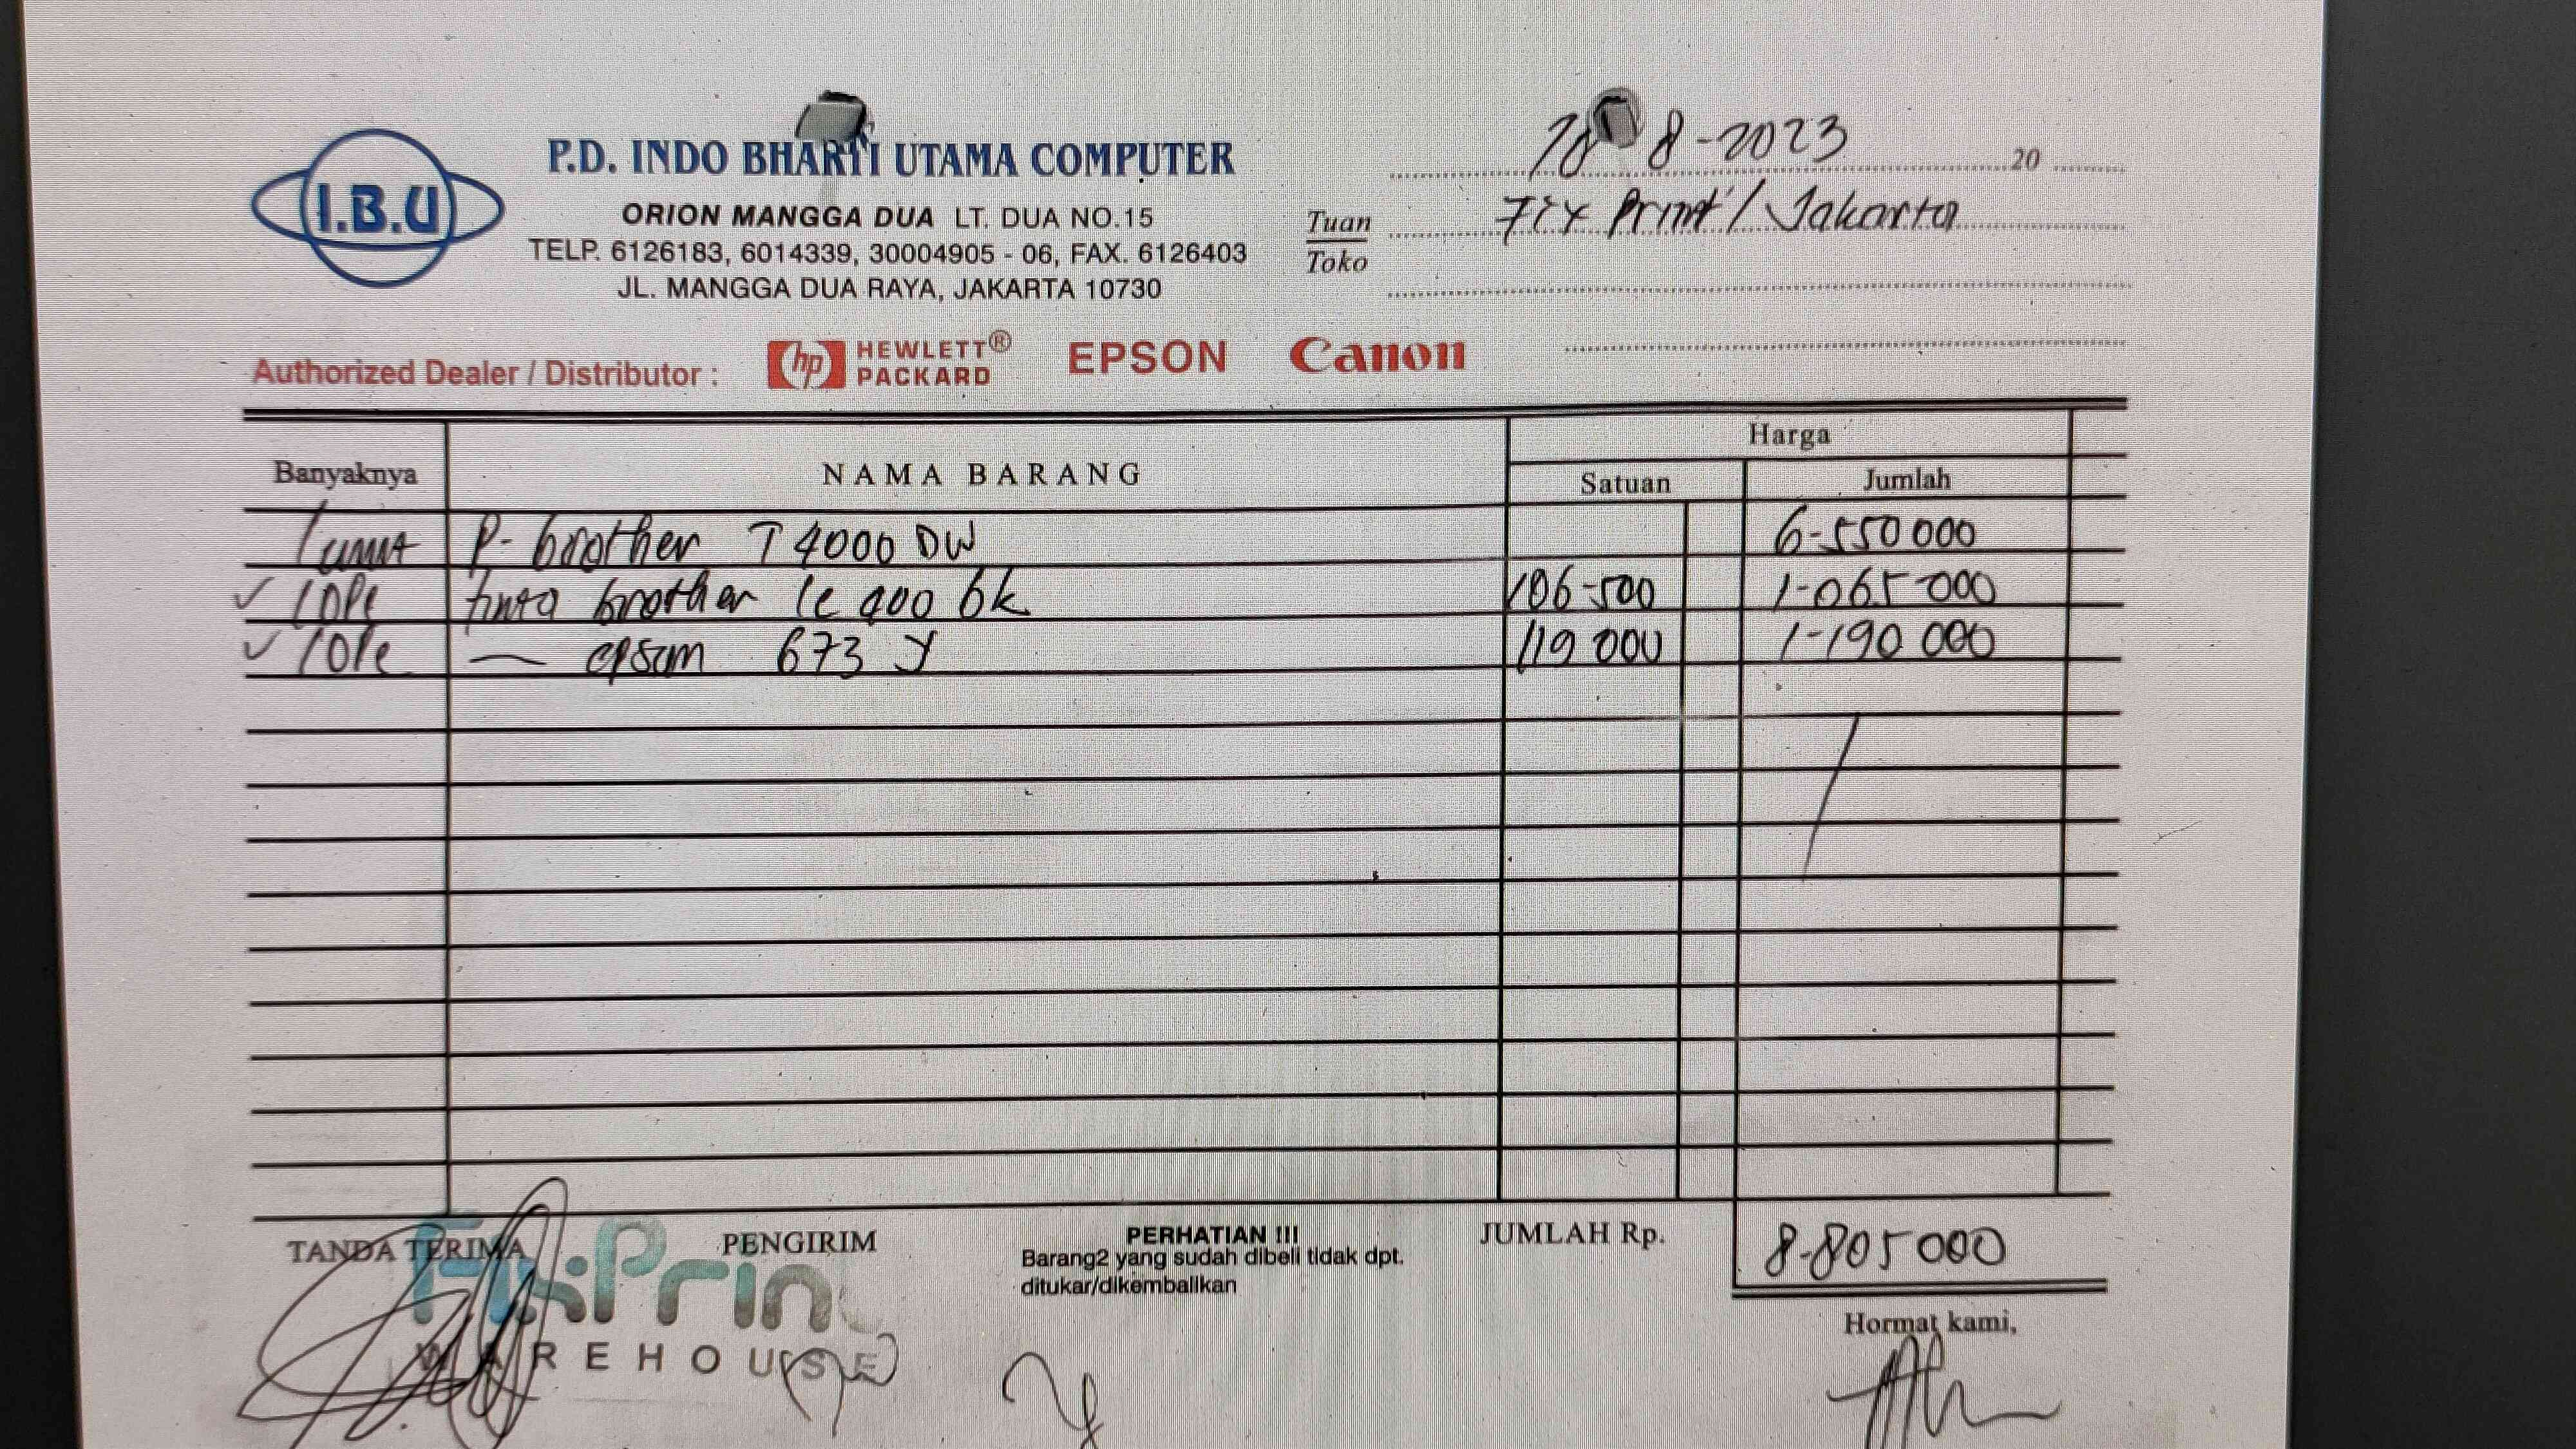 I.B.U
P.D. INDO BHARTI UTAMA COMPUTER
ORION MANGGA DUA LT. DUA NO.15
TELP. 6126183, 6014339, 30004905 - 06, FAX. 6126403
JL. MANGGA DUA RAYA, JAKARTA 10730
8-2023 20
Tuan
Toko
Fix Print / Jakarta
Authorized Dealer / Distributor : hp HEWLETT® PACKARD EPSON Canon
Banyaknya NAMA BARANG Harga
Satuan Jumlah
1 unit P- brother T 4000 DW 6-550 000
✓ 10 Pc tinta brother 106-500 1-065 000
✓ 10 Pc — epson 673 Y 119 000 1-190 000
TANDA TERIMA PENGIRIM PERHATIAN !!! JUMLAH Rp. 8-805 000
Barang2 yang sudah dibeli tidak dpt.
ditukar/dikembalikan
FixPrin
WAREHOUSE
Hormat kami,